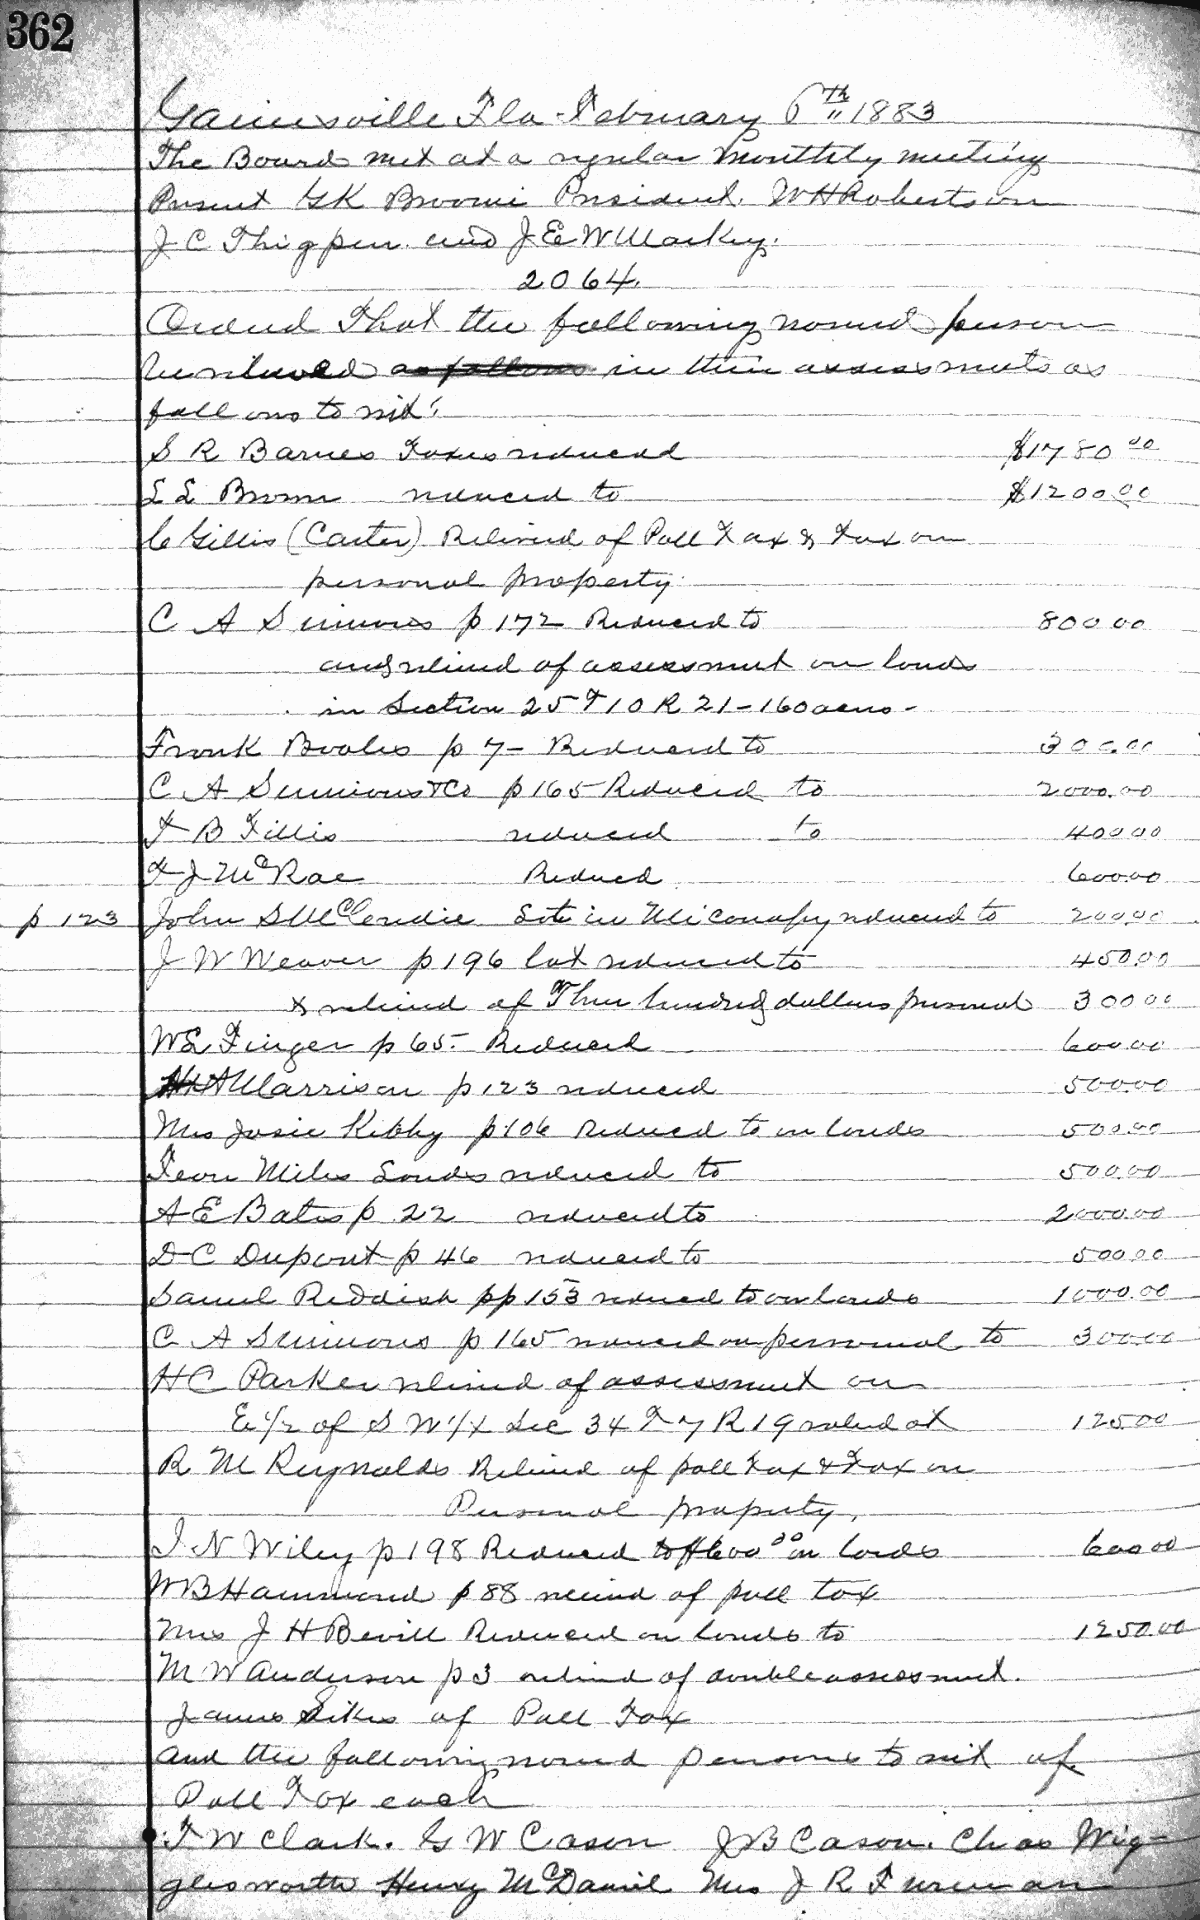 362
Gainesville Fla - February 6th 1883
The Board met at a regular Monthly meeting
Present G K Broome President. W H Robertson
J C Thigpen. and J. E W Markey.
2064.
Ordered That the following named person
be relieved as follows in their assessments as
follows to wit:
S R Barnes Taxes reduced $1780 00
L L Brown reduced to $1200.00
C Gillis (Carter) Relieved of Poll Tax & Tax on
personal property.
C A Simmons p 172 Reduced to 800.00
and relieved of assessment on lands
in Section 25 T 10 R 21 - 160 acres -
Frank Boales p 7 - Reduced to 300.00
C A Simmons & Co p 165 Reduced to 2000.00
T B Fillis reduced to 400.00
T J McRae Reduced 600.00
p 123 John S McClendie Lot in Miconapy reduced to 200.00
J W Weaver p 196 lot reduced to 450.00
& relieved of Three hundred dollars personal 300 00
W L Finger p 65 - Reduced 600.00
A Marrison p 123 reduced 500.00
Mrs Josie Kibby p 106 Reduced to on lands 500.00
Miles Lands reduced to 500.00
A E Bates p 22 reduced to 2000.00
D C Dupont p 46 reduced to 500.00
Samuel Reddish pp 153 reduced to on lands 1000.00
C A Simmons p 165 reduced on personal to 300.00
H C Parker relieved of assessment on
E 1/2 of S W 1/4 Sec 34 T 7 R 19 valued at 125.00
R M Reynolds Relieved of poll tax & Tax on
Personal property.
J. N Wiley p 198 Reduced to $600 00 on lands 600 00
W B Hammond p 88 relieved of poll tax
Mrs J H Bevill Reduced on lands to 1250.00
M W Anderson p 3 relieved of double assessment.
James Sikes of Poll Tax
and the following named persons to wit of
Poll Tax each
T W Clark. G W Cason J B Cason. Chas Wig-
glesworth Henry McDaniel Mrs J R Fureman